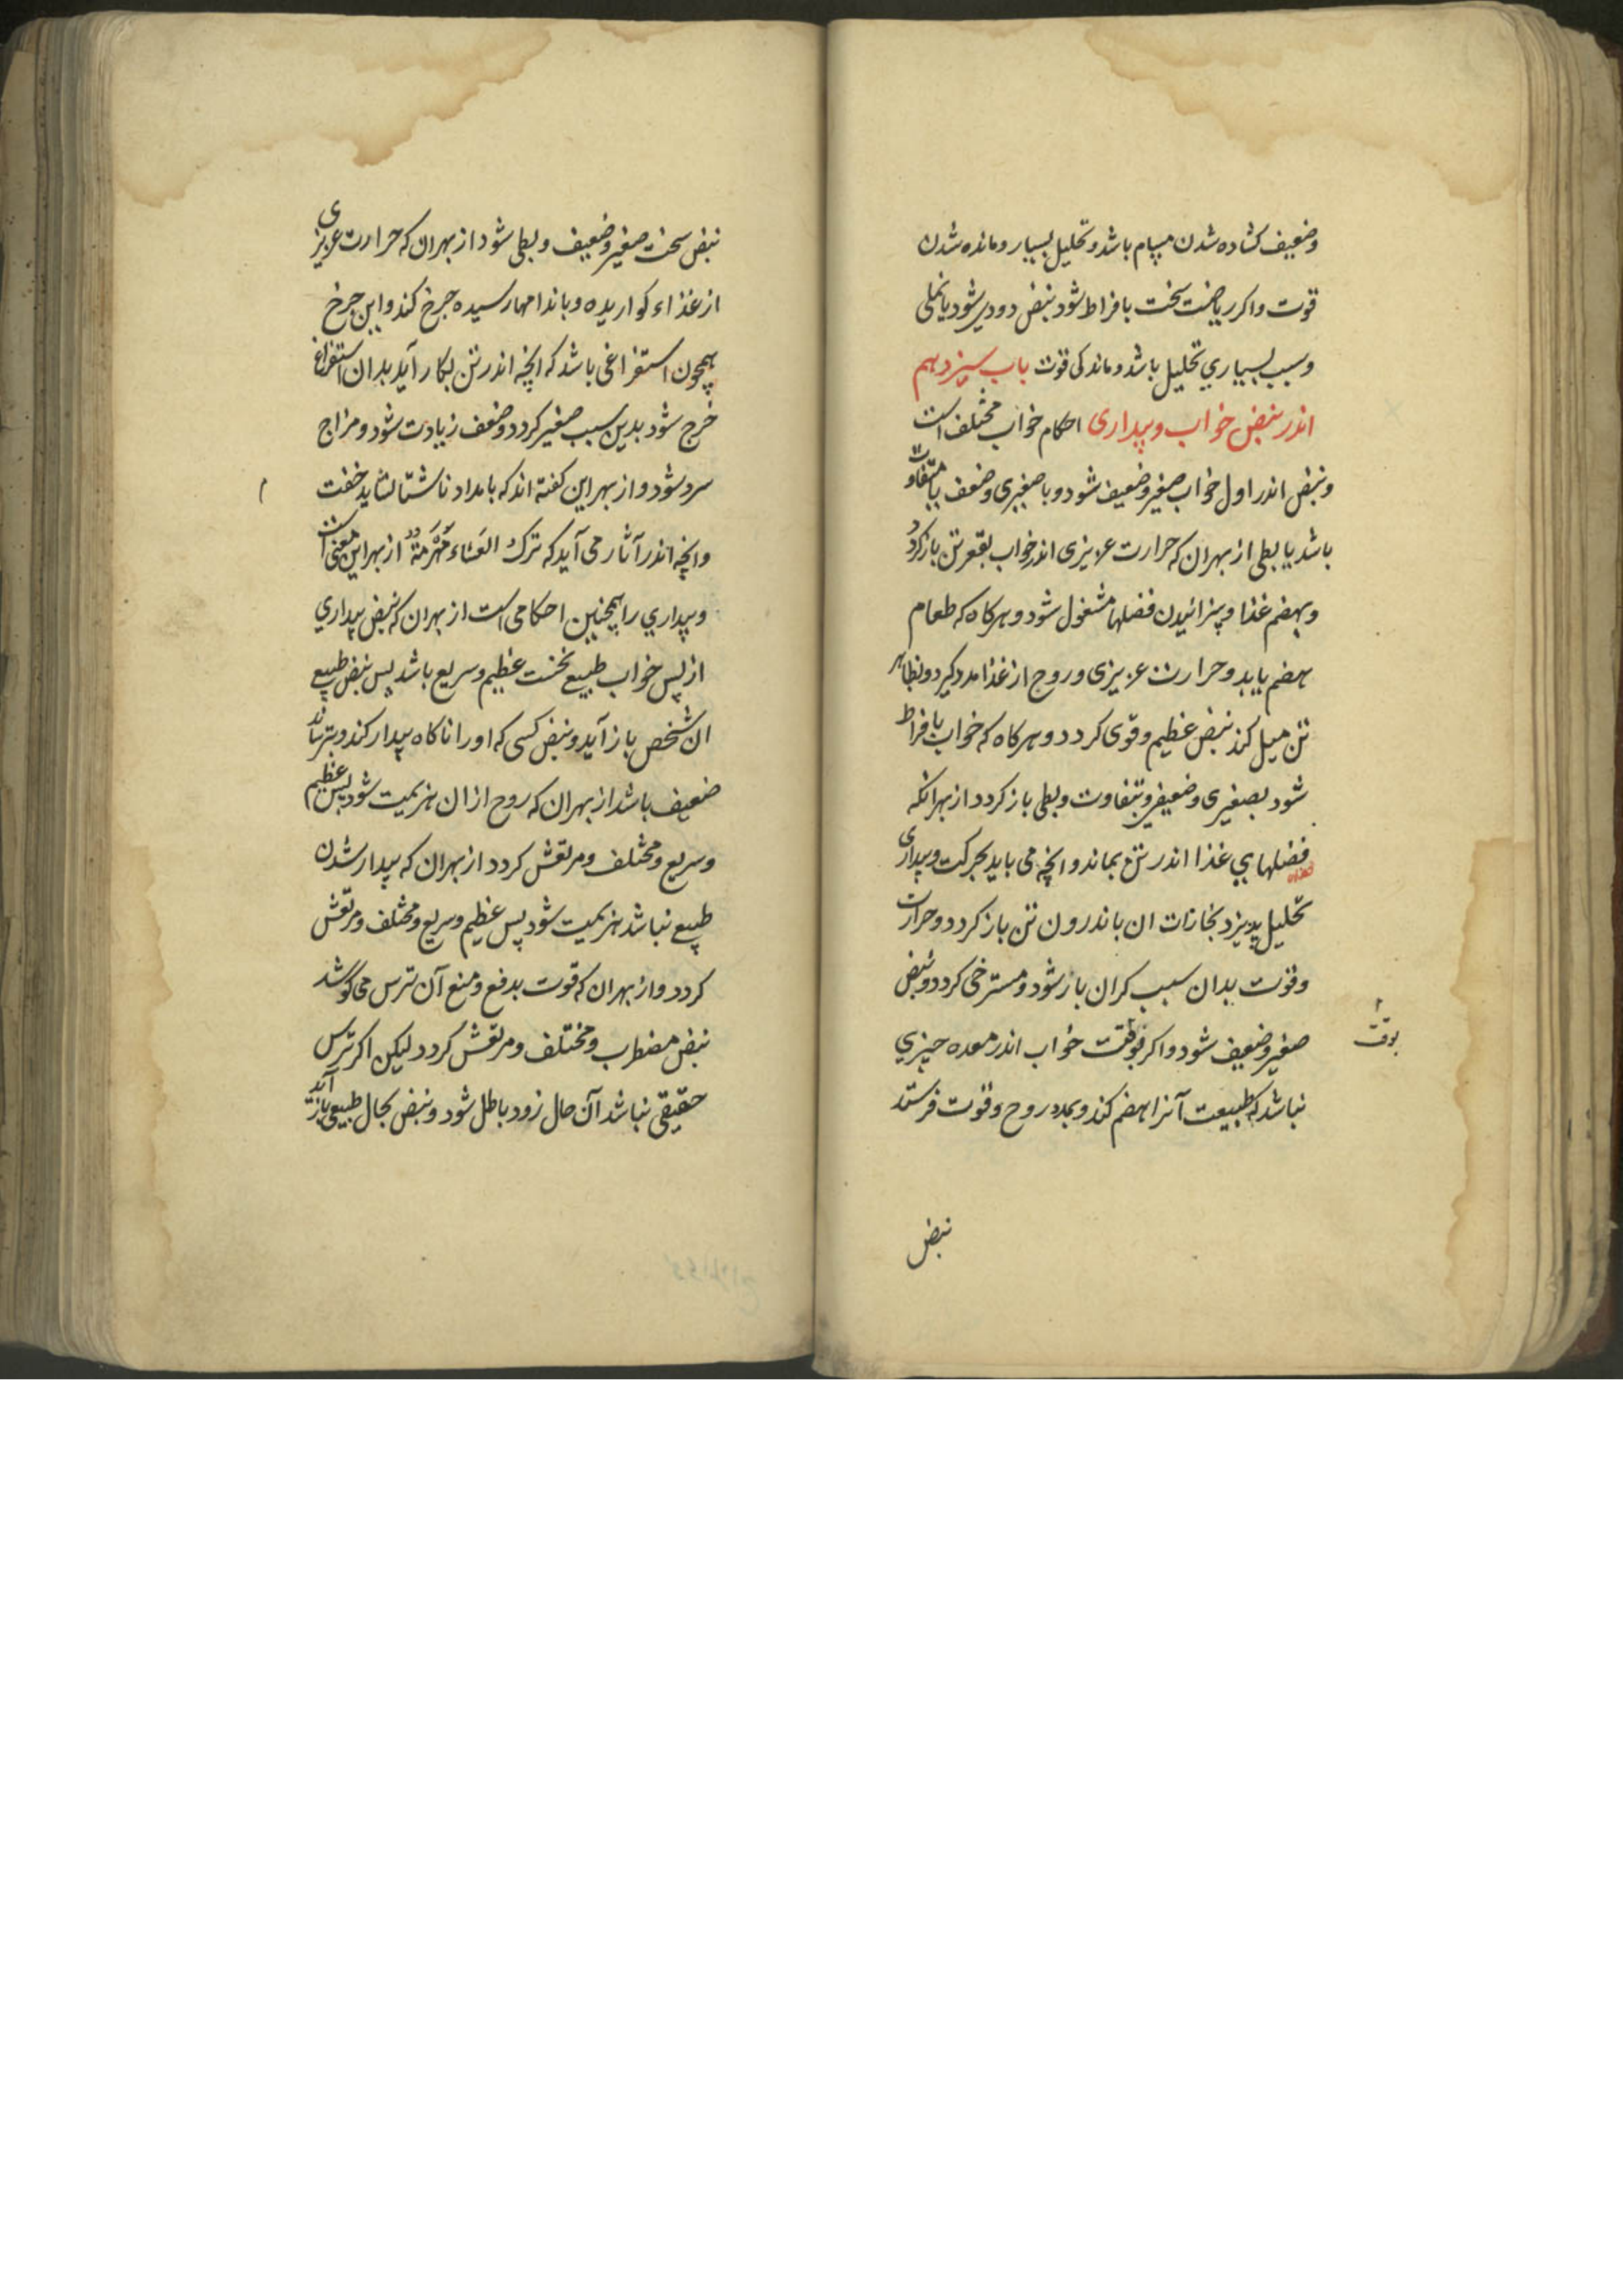 وضعیف کشاده شدن مسام باشد و تحلیل بسیار و مانده شدن
قوت واکر ریاضت سخت بافراط شود نبض دودی شود یا نملی
وسبب بسیاری تحلیل باشد و ماندکی قوت باب سیزدهم
اندر نبض خواب وبیداری احکام خواب مختلف است
ونبض اندر اول خواب صغیر وضعیف شود و با صغیری وضعف یا متفاوت
باشد یا بطی از بهران که حرارت عزیزی اندر خواب بقعر تن بازکردد
وبهضم غذا و پزائیدن فضلها مشغول شود و هرکاه که طعام
هضم یابد وحرارت عزیزی و روح از غذا مدد کیرد وبظاهر
تن میل کند نبض عظیم وقوی کردد و هرکاه که خواب بافراط
شود بصغیری وضعیفی وبتفاوت وبطی باز کردد از بهرانکه
فضلهای غذا اندر تن بماند و انچه می باید بحرکت وبیداری
تحلیل پذیزد بخارات ان باندرون تن باز کردد وحرارت
وقوت بدان سبب کران بار شود و مسترخی کردد ونبض
صغیر وضعیف شود و اکر بوقت خواب اندر معده چیزی
بوقت
نباشد که طبیعت آنرا هضم کند و بمدد روح وقوت فرستد
نبض
نبض سخت صغیر وضعیف وبطی شود از بهران که حرارت عزیزی
از غذاء کواریده و باندامها رسیده خرج کند واین خرج
همچون استفراغی باشد که انچه اندر تن بکار آید بدان استفراغ
خرج شود بدین سبب صغیر کردد وضعف زیادت شود و مزاج
سرد شود و از بهر این کفته اند که بامداد ناشتا نشاید خفت
وانچه اندر آثار می آید که ترك العَشاء مَهْرَمَةٌ از بهر این معنی است
وبیداری را همچنین احکامی است از بهران که نبض بیداری
از پس خواب طبیع نخست عظیم وسریع باشد پس نبض طبیع
ان شخص باز آید ونبض کسی که او را ناکاه بیدار کند و بترساند
ضعیف باشد از بهران که روح از ان هزیمت شود پس عظیم
وسریع ومختلف ومرتعش کردد از بهران که بیدار شدن
طبیع نباشد هزیمت شود پس عظیم وسریع ومختلف ومرتعش
کردد و از بهران که قوت بدفع ومنع آن ترس می کوشد
نبض مضطرب ومختلف ومرتعش کردد لیکن اکر ترس
حقیقی نباشد آن حال زود باطل شود ونبض بحال طبیعی باز آید